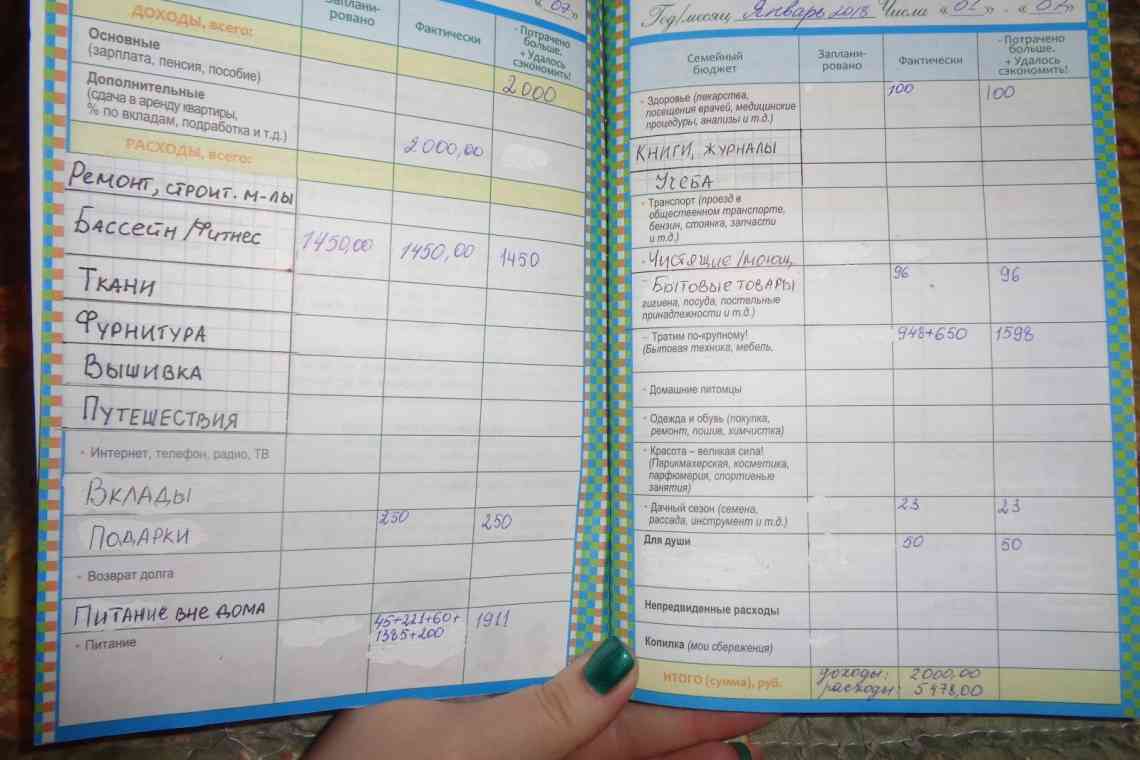 « 07 »
ДОХОДЫ, всего:
Заплани-
ровано
Фактически
- Потрачено
больше.
+ Удалось
сэкономить!
Основные
(зарплата, пенсия, пособие)
2000
Дополнительные
(сдача в аренду квартиры,
% по вкладам, подработка и т.д.)
2000,00
РАСХОДЫ, всего:
Ремонт, строит. м-лы
Бассейн/Фитнес 1450,00 1450,00 1450
Ткани
Фурнитура
Вышивка
Путешествия
- Интернет, телефон, радио, ТВ
Вклады
Подарки 250 250
- Возврат долга
Питание вне дома
- Питание
45+221+60+
1385+200
1911
Год/месяц Январь 2018 Числа « 01 » - « 07 »
Семейный
бюджет
Заплани-
ровано
Фактически
- Потрачено
больше.
+ Удалось
сэкономить!
- Здоровье (лекарства,
посещения врачей, медицинские
процедуры, анализы и т.д.)
100 100
Книги, журналы
Учеба
- Транспорт (проезд в
общественном транспорте,
бензин, стоянка, запчасти
и т.д.)
- Чистящие/моющ.
Бытовые товары 96 96
гигиена, посуда, постельные
принадлежности и т.д.)
- Тратим по-крупному! 948+650 1598
(Бытовая техника, мебель,
- Домашние питомцы
- Одежда и обувь (покупка,
ремонт, пошив, химчистка)
- Красота – великая сила!
(Парикмахерская, косметика,
парфюмерия, спортивные
занятия)
- Дачный сезон (семена, 23 23
рассада, инструмент и т.д.)
Для души 50 50
Непредвиденные расходы
Копилка (мои сбережения)
ИТОГО (сумма), руб.
доходы: 2000,00
расходы: 5478,00